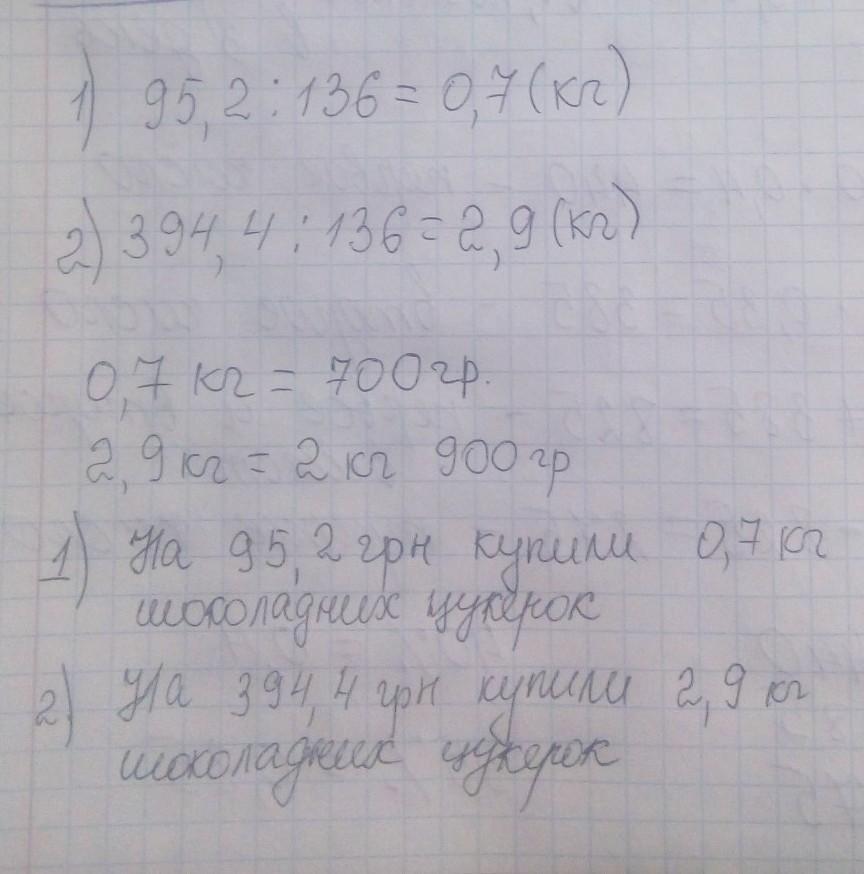 1) 95,2 : 136 = 0,7 (кг)
2) 394,4 : 136 = 2,9 (кг)
0,7 кг = 700 гр.
2,9 кг = 2 кг 900 гр
1) На 95,2 грн купили 0,7 кг
шоколадних цукерок
2) На 394,4 грн купили 2,9 кг
шоколадних цукерок